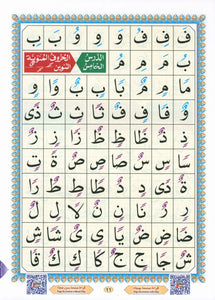 فَ فِ فُ وَ وِ وُ بَ بِ
بُ مَ مِ مُ الدرس الخامس الحروف المنونة التنوين
مًا مٍ مٌ بًا بٍ بٌ وًا وٍ
وٌ فًا فٍ فٌ ثًا ثٍ ثٌ ذًى
ذٍ ذٌ ظًا ظٍ ظٌ زًا زٍ زٌ
سًا سٍ سٌ صًا صٍ صٌ ةً تٍ
ةٌ دًى دٍ دٌ طًا طٍ طٌ رًا
رٍ رٌ نًا نٍ نٌ لًا لٍ لٌ
ضًا ضٍ ضٌ يًا يٍ يٌ شًا شٍ
شٌ جًا جٍ جٌ كًا كٍ كٌ قًا
١١